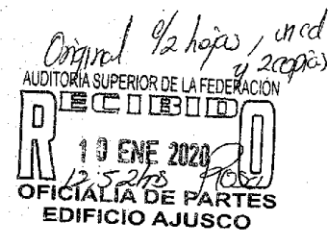 Original c/2 hojas, un cd
y 2 copias
AUDITORÍA SUPERIOR DE LA FEDERACIÓN
RECIBIDO
10 ENE 2020
12:52hrs Rosa
OFICIALIA DE PARTES
EDIFICIO AJUSCO